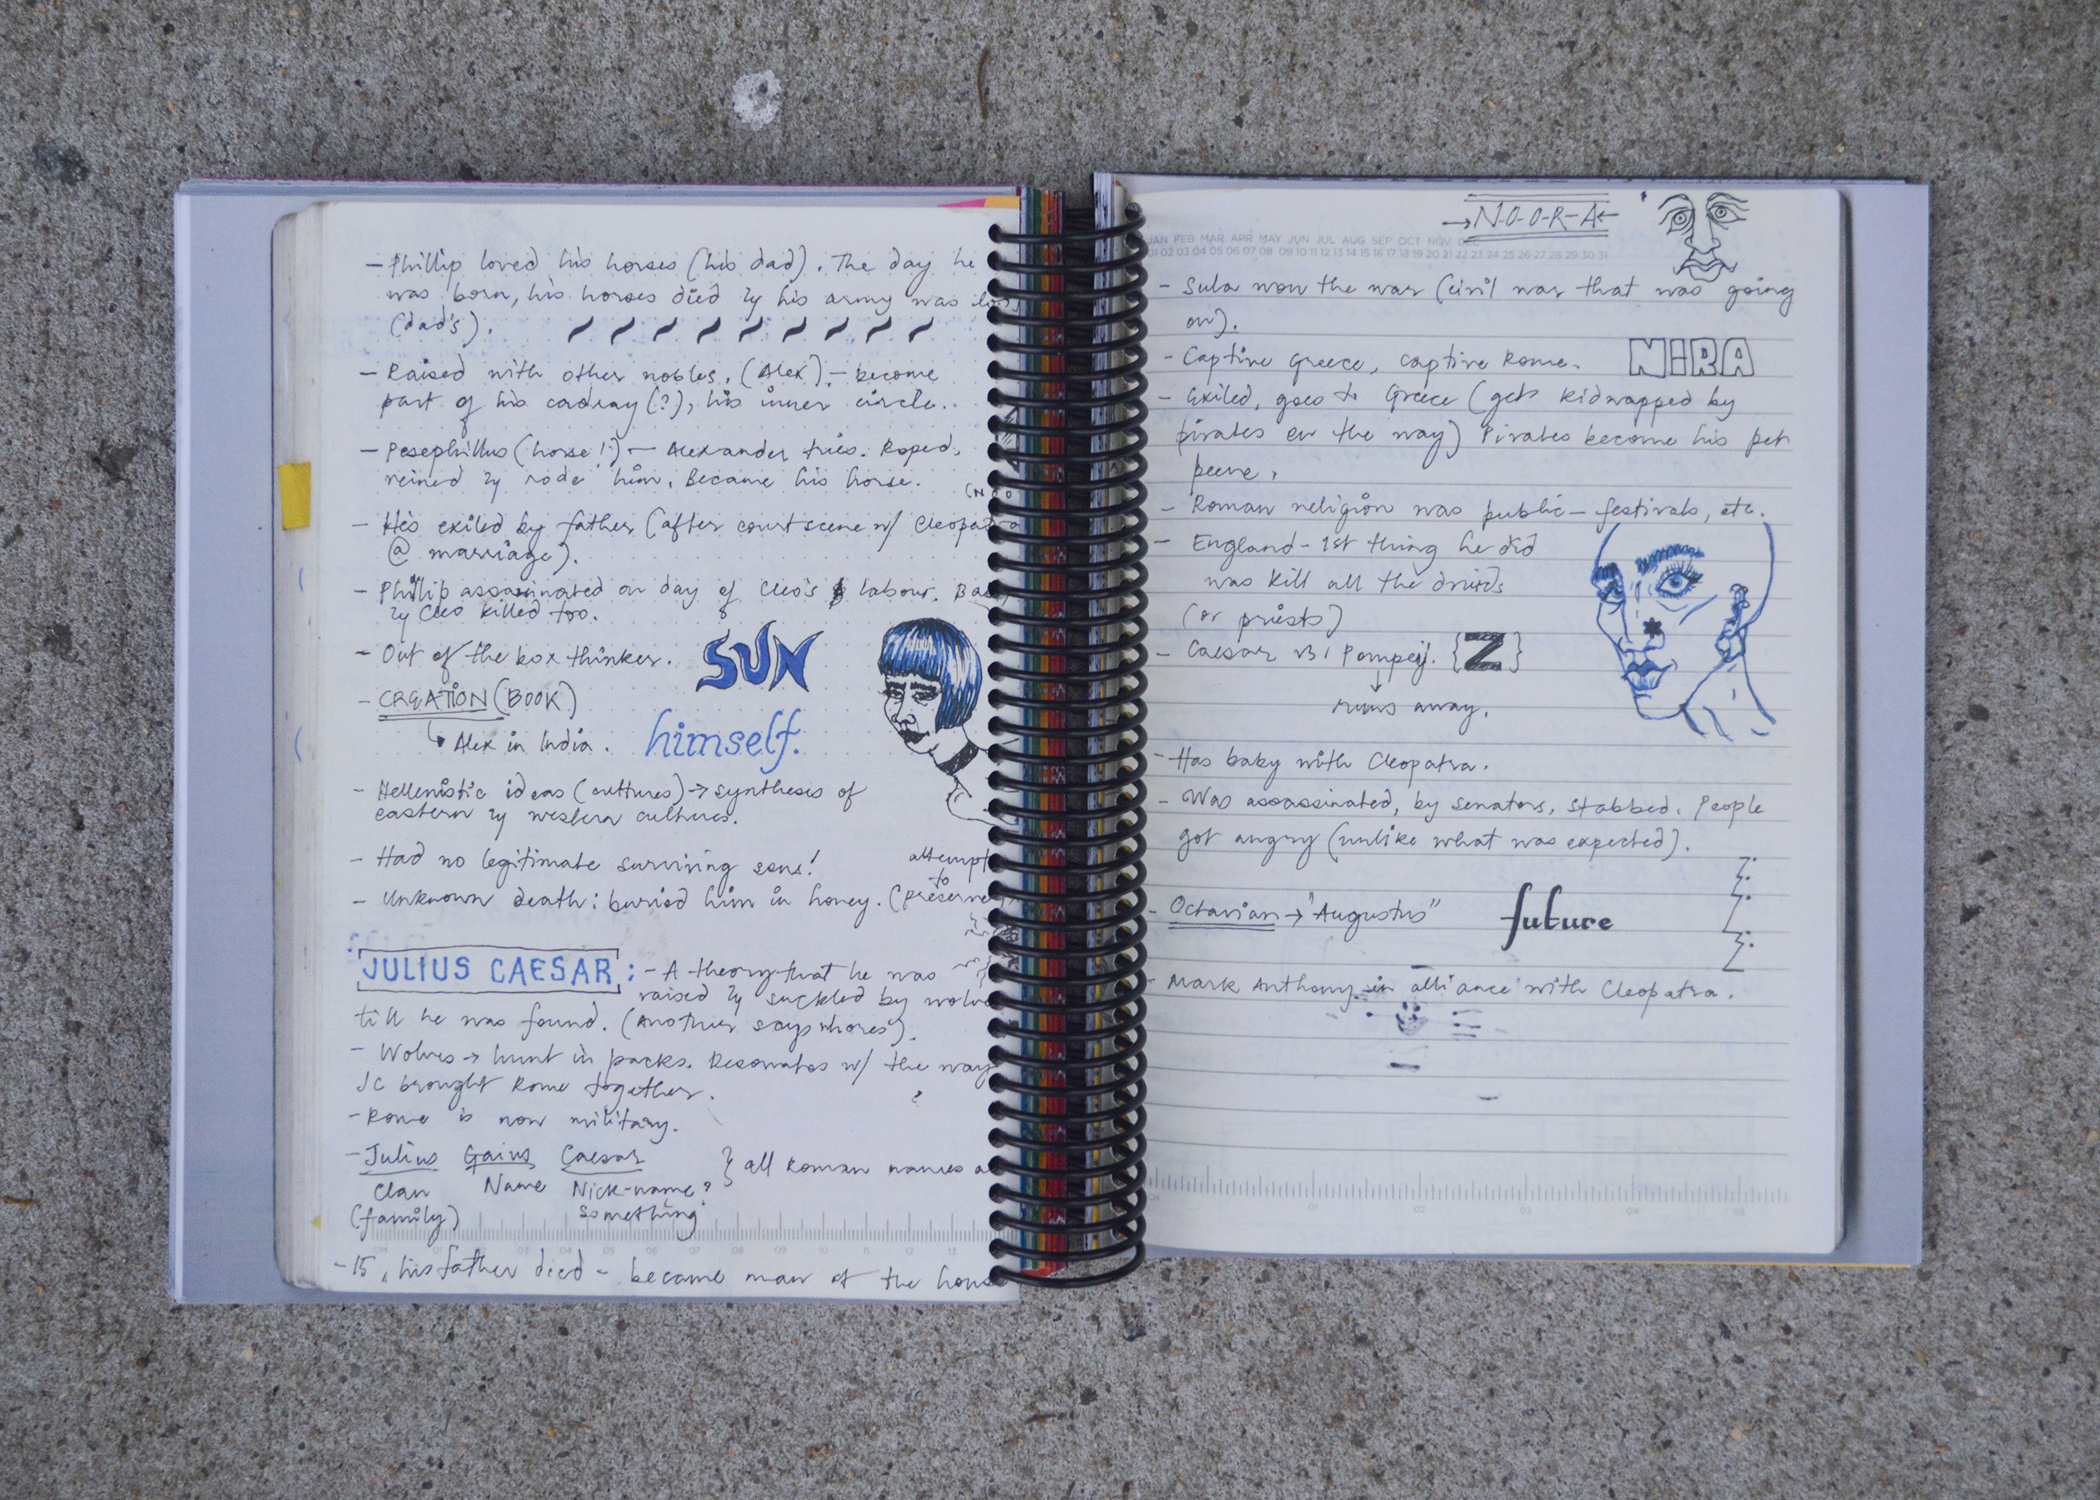 - Phillip loved his horses (his dad). The day he
was born, his horses died & his army was
(dad's).
- Raised with other nobles, (Alex) - become
part of his (?), his inner circle.
- Pesephillus (horse!) - Alexander tries. Roped,
reined & rode him. Became his horse.
- He's exiled by father (after court scene w/ Cleopatra
@ marriage).
- Phillip assassinated on day of Cleo's labour.
& Cleo killed too.
- Out of the box thinker.
SUN
- CREATION (BOOK)
Alex in India.
himself.
- Hellenistic ideas (cultures) → synthesis of
eastern & western cultures.
- Had no legitimate surviving sons!
attempt
to
- Unknown death: buried him in honey. (preserve
JULIUS CAESAR: - A theory that he was
raised & suckled by wolves
till he was found. (Another says whores).
- Wolves → hunt in packs. Resonates w/ the way
JC brought Rome together.
- Rome is now military.
- Julius Gaius Caesar } all Roman names
Clan Name Nick-name?
(family) something
CM 01 03 04 05 06 07 08 09 10 11 12 13
- 15, his father died - became man of the house
→ N-O-O-R-A ←
JAN FEB MAR APR MAY JUN JUL AUG SEP OCT NOV
01 02 03 04 05 06 07 08 09 10 11 12 13 14 15 16 17 18 19 20 21 22 23 24 25 26 27 28 29 30 31
- Sula won the war (civil war that was going
on).
- Captive Greece, captive Rome.
NIRA
- Exiled, goes to Greece (gets kidnapped by
pirates on the way) Pirates become his pet
peeve.
- Roman religion was public - festivals, etc.
- England - 1st thing he did
was kill all the druids
(or priests)
- Caesar vs. Pompeij. {Z}
↓
runs away.
- Has baby with Cleopatra.
- Was assassinated, by senators, stabbed. People
got angry (unlike what was expected).
- Octavian → "Augustus"
future
- Mark Anthony in alliance with Cleopatra.
CH 01 02 03 04 05